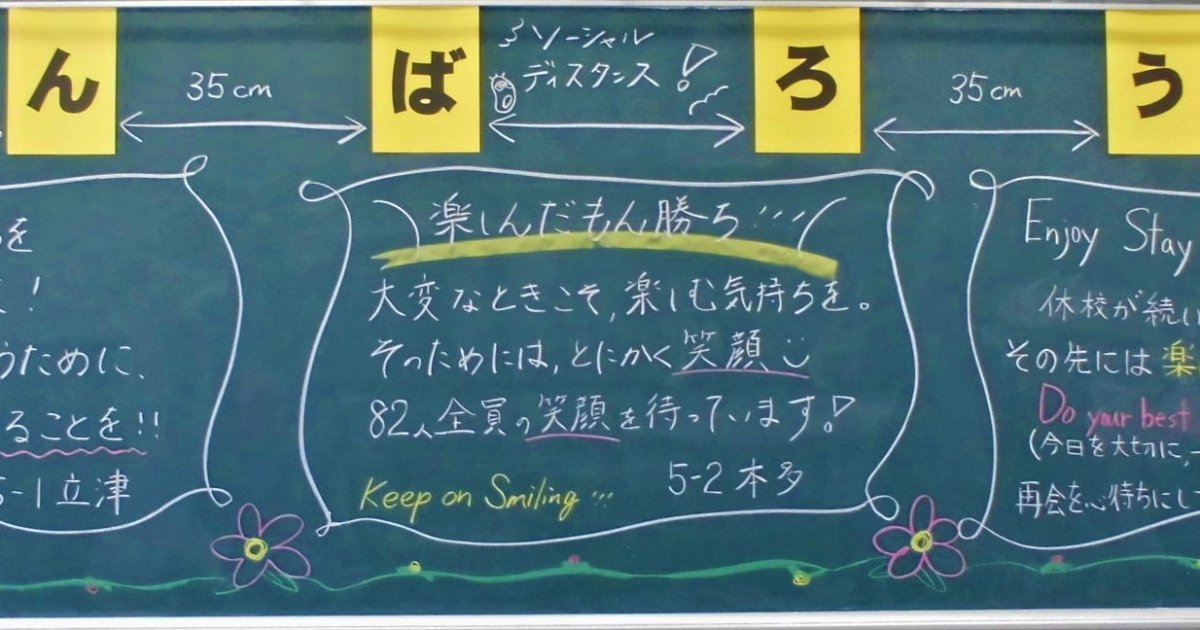 ん
35cm
ば
ソーシャル
ディスタンス!
ろ
35cm
う
を
!
うために、
ることを!!
5-1立津
楽しんだもん勝ち…
大変なときこそ,楽しむ気持ちを。
そのためには,とにかく笑顔
82人全員の笑顔を待っています!
Keep on Smiling…
5-2本多
Enjoy Stay
休校が続い
その先には楽
Do your best
(今日を大切に,一
再会を心待ちにし